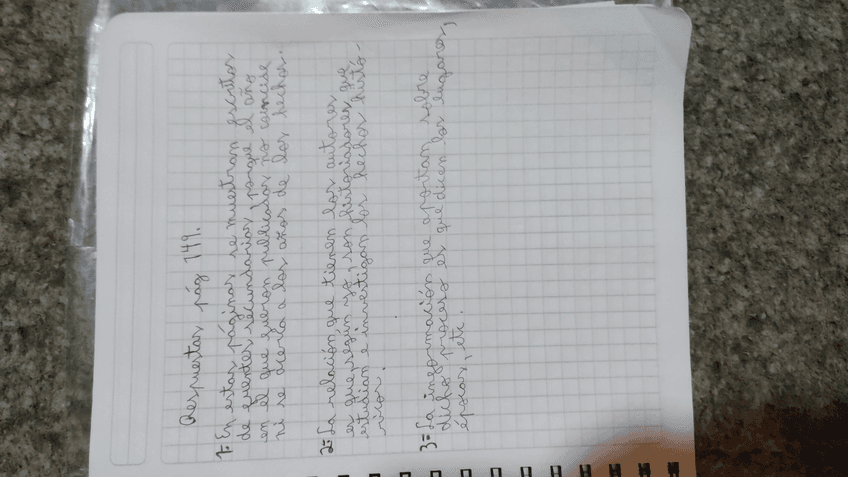 Respuestas pág 149.
1- En estas páginas se muestran escritos
de fuentes secundarias, porque el año
en el que fueron publicados no coincide
ni se acerca a los años de los hechos.
2= La relación que tienen los autores
es que, según yo, son historiadores que
estudian e investigan los hechos histó-
ricos.
3= La información que aportan sobre
dicho proceso es que dicen los lugares,
épocas, etc.